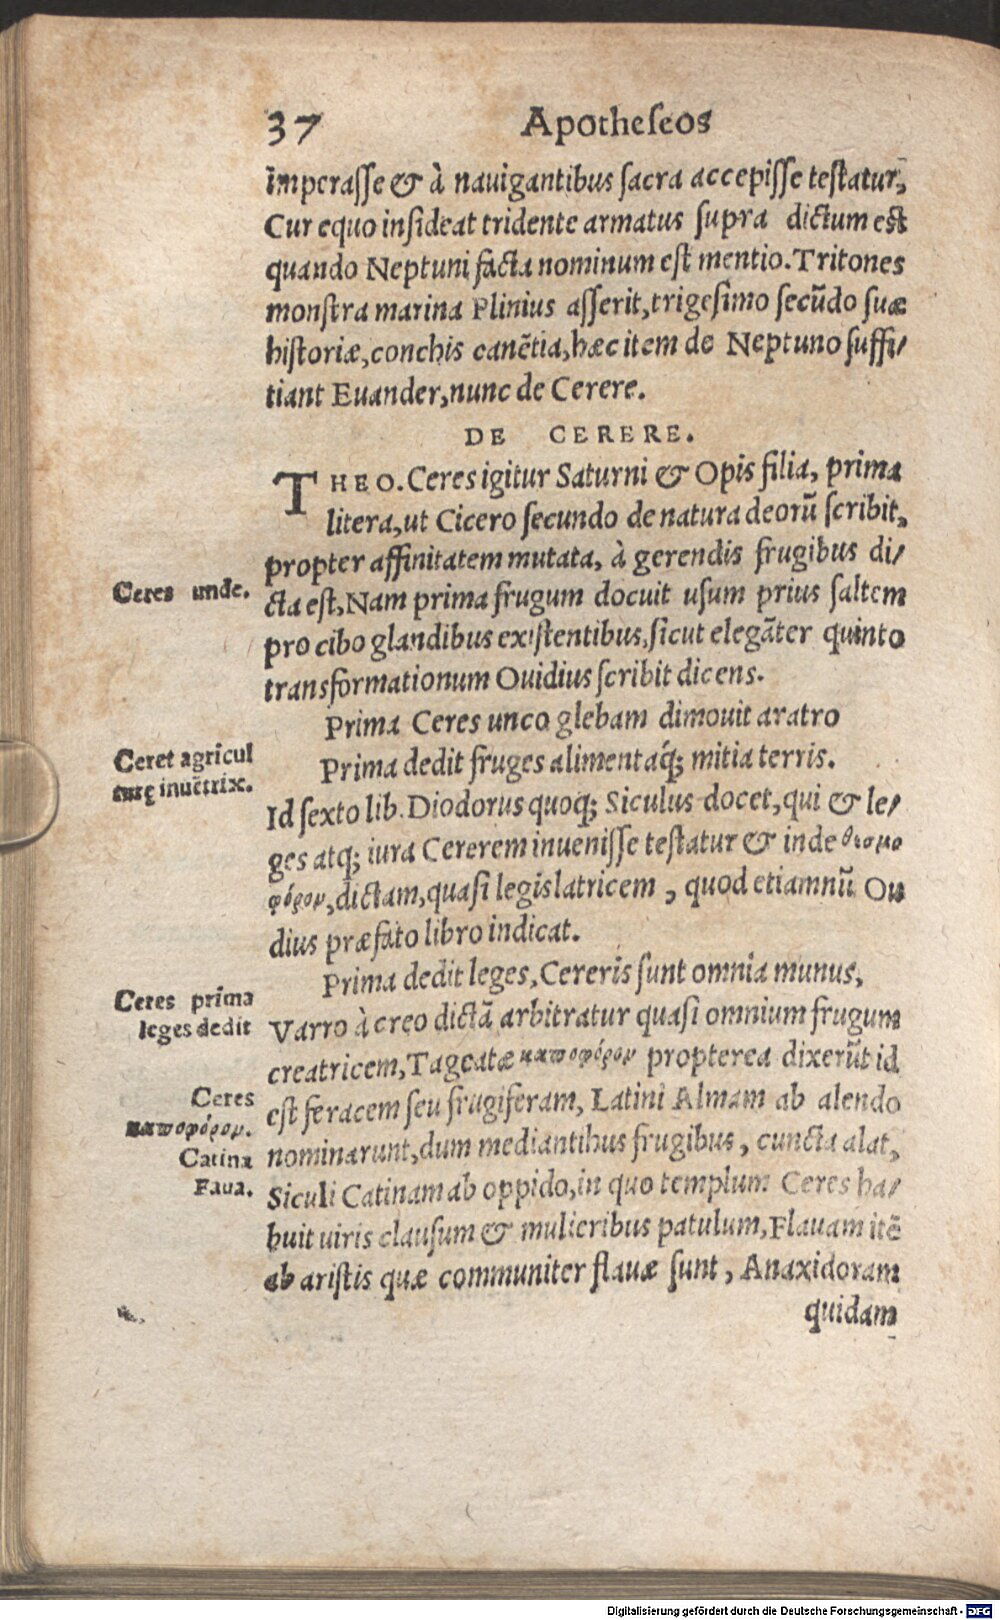 37 Apotheſeos
imperaſſe & à nauigantibus ſacra accepiſſe teſtatur,
Cur equo inſideat tridente armatus ſupra dictum eſt
quando Neptuni facta nominum eſt mentio. Tritones
monſtra marina Plinius aſſerit, trigeſimo ſecūdo ſuæ
hiſtoriæ, conchis canētia, hæc item de Neptuno ſuffi/
tiant Euander, nunc de Cerere.
DE CERERE.
THEO. Ceres igitur Saturni & Opis filia, prima
litera, ut Cicero ſecundo de natura deorū ſcribit,
propter affinitatem mutata, à gerendis frugibus di/
Ceres unde.
cta eſt, Nam prima frugum docuit uſum prius ſaltem
pro cibo glandibus exiſtentibus, ſicut elegāter quinto
transformationum Ouidius ſcribit dicens.
Prima Ceres unco glebam dimouit aratro
Ceret agricul
turę inuētrix.
Prima dedit fruges alimentaq́; mitia terris.
Id ſexto lib. Diodorus quoq; Siculus docet, qui & le/
ges atq; iura Cererem inueniſſe teſtatur & inde θεσμο
φόρον, dictam, quaſi legislatricem, quod etiamnū Oui
dius præfato libro indicat.
Prima dedit leges, Cereris ſunt omnia munus,
Ceres prima
leges dedit
Varro à creo dictā arbitratur quaſi omnium frugum
creatricem, Tageatæ καποφόρον propterea dixerūt id
Ceres
καποφόρον.
Catina
Faua.
eſt feracem ſeu frugiferam, Latini Almam ab alendo
nominarunt, dum mediantibus frugibus, cuncta alat,
Siculi Catinam ab oppido, in quo templum Ceres ha/
buit uiris clauſum & mulieribus patulum, Flauam itē
ab ariſtis quæ communiter flauæ ſunt, Anaxidoram
quidam
Digitalisierung gefördert durch die Deutsche Forschungsgemeinschaft - DFG